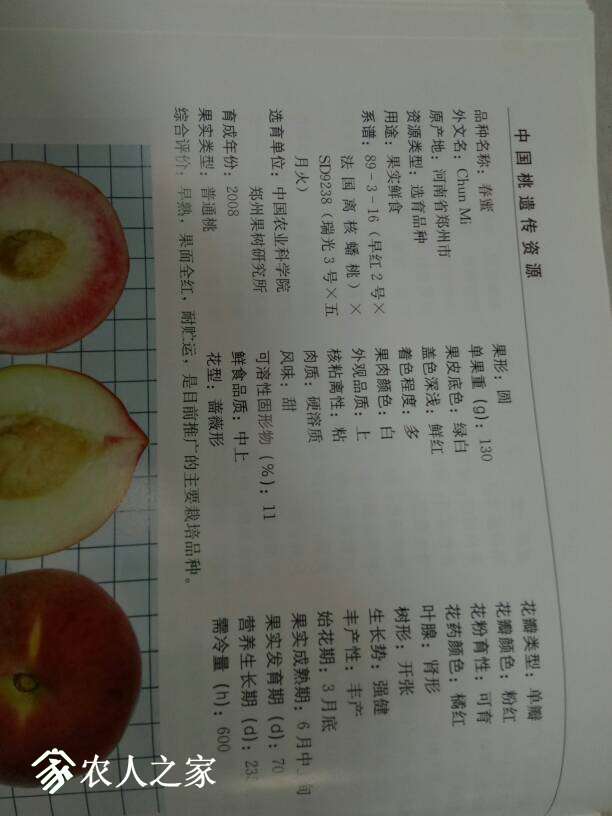 中国桃遗传资源
品种名称：春蜜
外文名：Chun Mi
原产地：河南省郑州市
资源类型：选育品种
用途：果实鲜食
系谱：89-3-16（早红2号×
法国离核蟠桃）×
SD9238（瑞光3号×五
月火）
选育单位：中国农业科学院
郑州果树研究所
育成年份：2008
果实类型：普通桃
综合评价：早熟，果面全红，耐贮运，是目前推广的主要栽培品种。
果形：圆
单果重（g）：130
果皮底色：绿白
盖色深浅：鲜红
着色程度：多
果肉颜色：白
外观品质：上
核粘离性：粘
肉质：硬溶质
风味：甜
可溶性固形物（%）：11
鲜食品质：中上
花型：蔷薇形
花瓣类型：单瓣
花瓣颜色：粉红
花粉育性：可育
花药颜色：橘红
叶腺：肾形
树形：开张
生长势：强健
丰产性：丰产
始花期：3月底
果实成熟期：6月中 旬
果实发育期（d）：70
营养生长期（d）：
需冷量（h）：600
农人之家